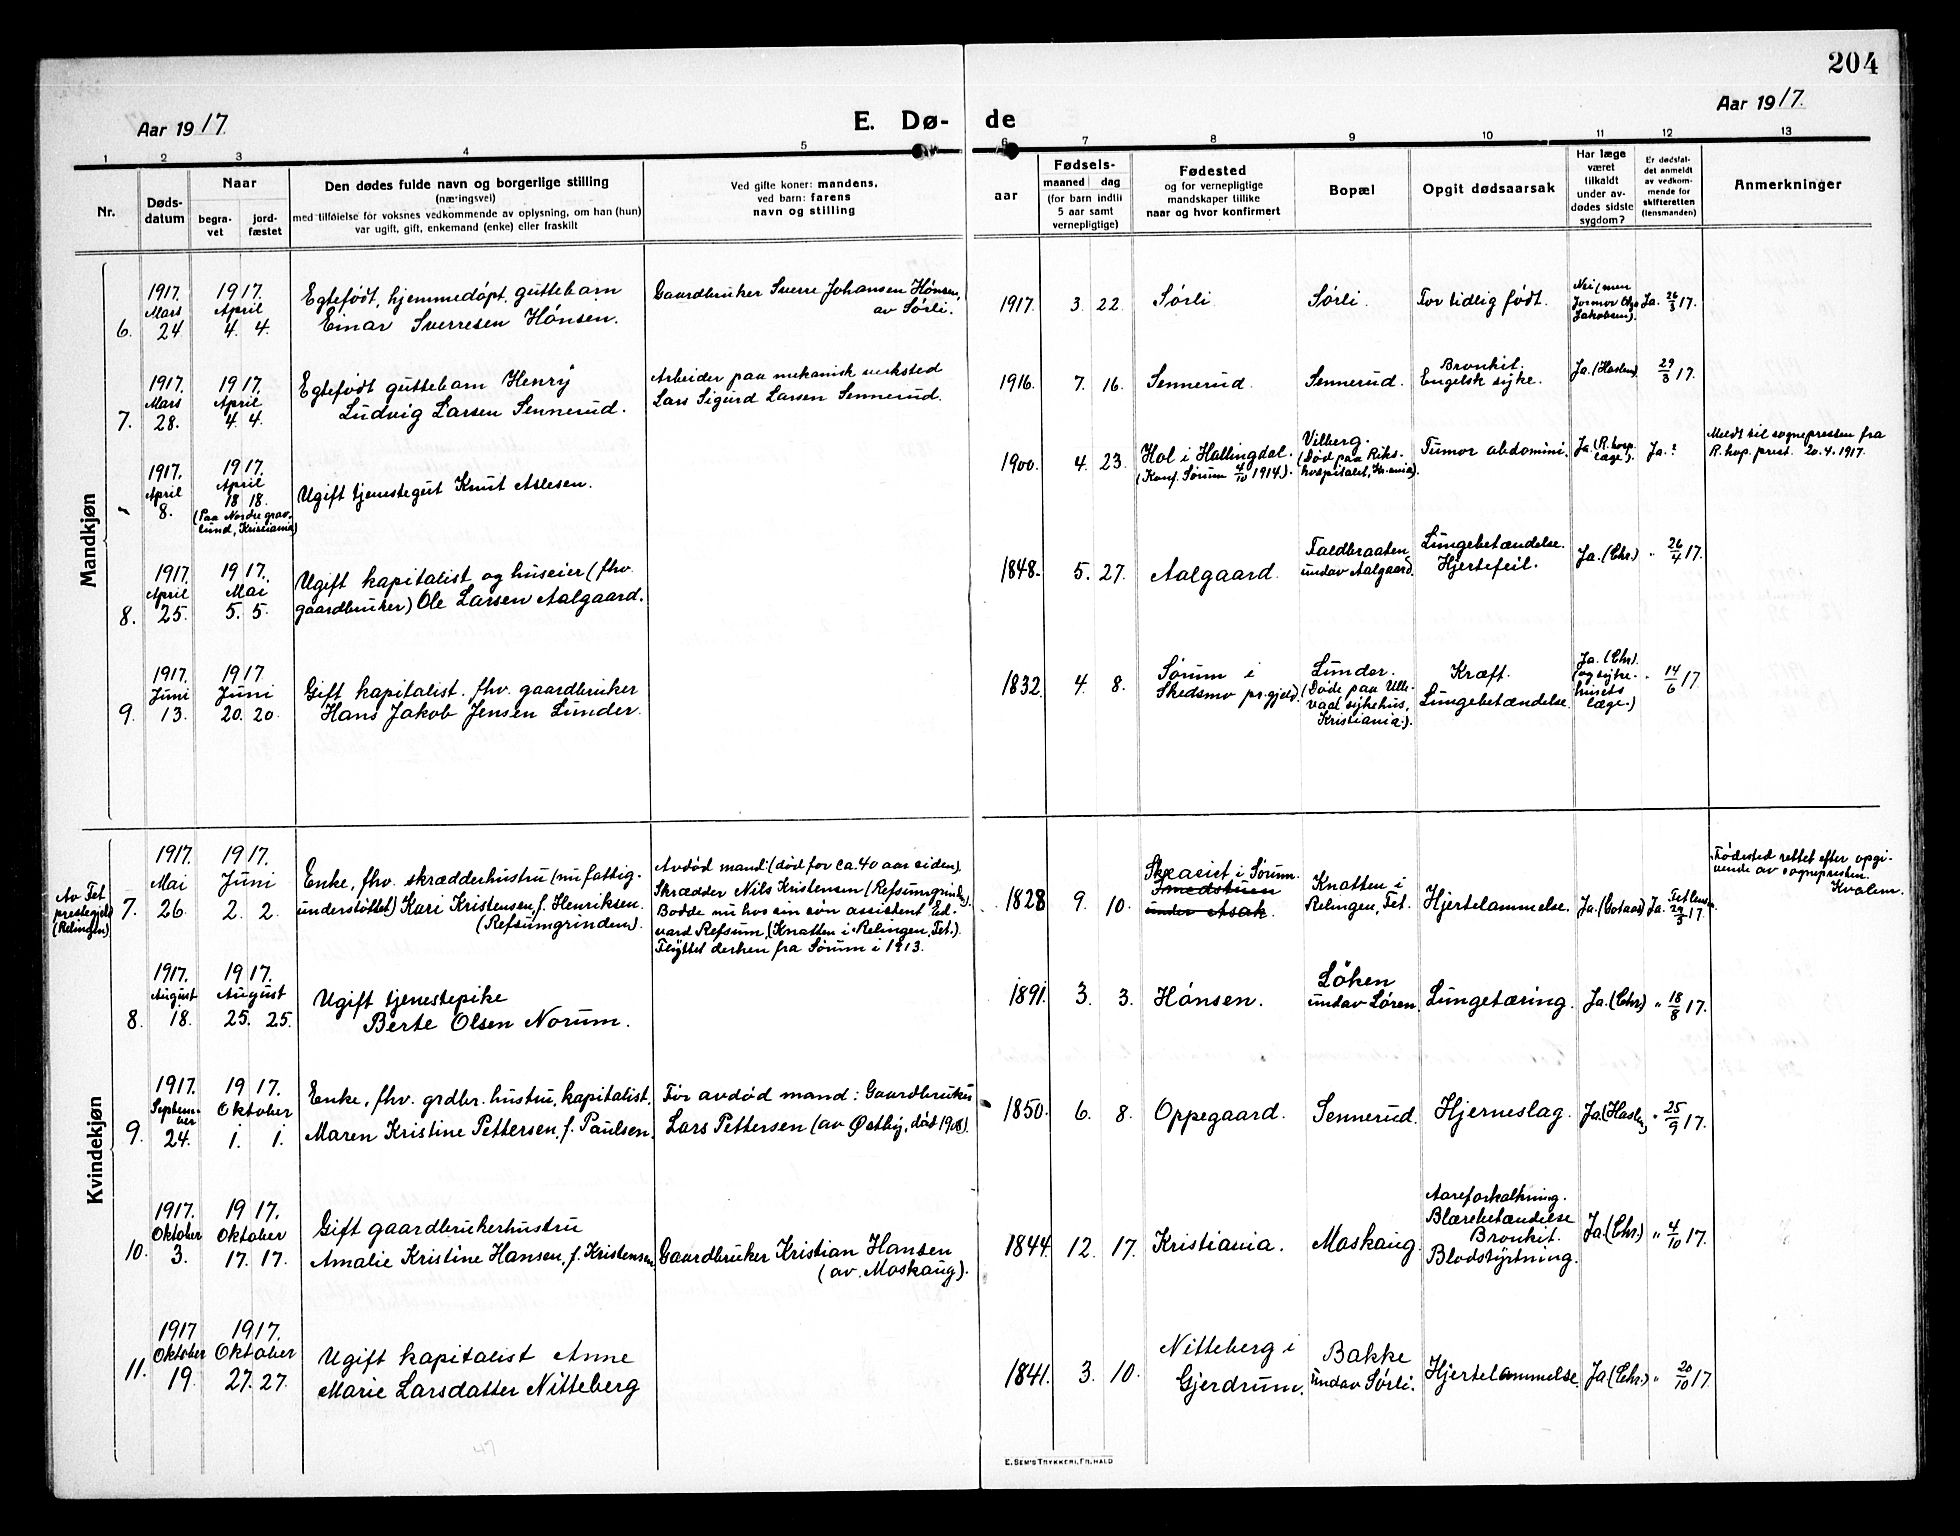 204
Aar 1917.
E. Dø-
de
Aar 1917.
1 2 3 4 5 6 7 8 9 10 11 12 13
Nr.
Døds-
datum
Naar
begra-
vet
jord-
fæstet
Den dødes fulde navn og borgerlige stilling
(næringsvei)
med tilføielse for voksnes vedkommende av oplysning, om han (hun)
var ugift, gift, enkemand (enke) eller fraskilt
Ved gifte koner: mandens,
ved barn: farens
navn og stilling
aar
Fødsels-
maaned dag
(for barn indtil
5 aar samt
vernepligtige)
Fødested
og for vernepligtige
mandskaper tillike
naar og hvor konfirmert
Bopæl
Opgit dødsaarsak
Har læge
været
tilkaldt
under av-
dødes sidste
sygdom?
Er dødsfal-
det anmeldt
av vedkom-
mende for
skifteretten
(lensmanden)
Anmerkninger
Mandkjøn
6.
1917.
Mars
24
1917.
April
4. 4.
Egtefødt, hjemmedøpt, guttebarn
Einar Sverresen Hønsen.
Gaardbruker Sverre Johansen Hønsen,
av Sørli.
1917. 3. 22.
Sørli.
Sørli.
For tidlig født.
Nei (men
Jormor Chr.
Jakobsen).
Ja. 26/3 17.
7.
1917.
Mars
28.
1917.
April
4. 4.
Egtefødt guttebarn Henry
Ludvig Larsen Sennerud.
Arbeider paa mekanisk verksted
Lars Sigurd Larsen Sennerud.
1916. 7. 16.
Sennerud.
Sennerud.
Bronkit.
Engelsk syke.
Ja. (Haslem)
29/3 17.
-
1917.
April
8.
1917.
April
18 18.
(Paa Nordre grav-
lund, Kristiania)
Ugift tjenestegut Knut Aslesen.
1900. 4. 23.
Hol i Hallingdal.
(Konf. Sørum 4/10 1914).
Vilberg.
(Død paa Riks-
hospitalet, Kr.ania).
Tumor abdomini.
Ja. (R.hosp.
læge).
Ja.?
Meldt til sognepresten fra
R.hop. prest. 20.4.1917.
8.
1917.
April
25.
1917.
Mai
5. 5.
Ugift kapitalist og huseier (fhv.
gaardbruker) Ole Larsen Aalgaard.
1848. 5. 27.
Aalgaard.
Faldbraaten
undav Aalgaard.
Lungebetændelse.
Hjertefeil.
Ja. (Chr.)
" 26/4 17.
9.
1917.
Juni
13.
1917
Juni
20. 20.
Gift kapitalist. fhv. gaardbruker
Hans Jakob Jensen Lunder.
1832. 4. 8.
Sørum i
Skedsmo pr.gjeld.
Lunder.
(Døde paa Ulle-
vaal sykehus,
Kristiania.).
Kræft.
Lungebetændelse.
Ja. (Chr.)
(og syke-
husets
læge.)
" 14/6 17.
Kvindekjøn
Av Fet
prestegjeld
(Relingen)
7.
1917.
Mai
26.
1917.
Juni
2. 2.
Enke, fhv. skrædderhustru (nu fattig-
understøttet) Kari Kristensen, f. Henriksen.
(Refsumgrinden).
Avdød mand: (død for ca. 40 aar siden).
Skrædder Nils Kristensen (Refsumgrinden).
Bodde nu hos sin søn assistent Ed-
vard Refsum, (Knatten i Relingen, Fet.).
Flyttet derhen fra Sørum i 1913.
1828 9. 10.
Skea eiet i Sørum.
Smedstuen
under Asak.
Knatten i
Relingen, Fet.
Hjertelammelse.
Ja. (Ja.
Fet
17.
Fødested rettet efter opgi-
vende av sognepresten.
Kvalem.
8.
1917.
August
18.
1917.
August
25. 25.
Ugift tjenestepike
Berte Olsen Norum.
1891. 3. 3.
Hønsen.
Löken
undav Løren.
Lungetæring.
Ja. (Chr.)
" 18/8 17.
9.
1917.
Septem-
ber
24.
1917.
Oktober
1. 1.
Enke, fhv. grdbr. hustru, kapitalist.
Maren Kristine Pettersen, f. Paulsen.
Før avdød mand: Gaardbruker
Lars Pettersen (av Østby, død 1908).
1850. 6. 8.
Oppegaard.
Sennerud.
Hjerneslag.
Ja. (Haslem)
" 25/9 17.
10.
1917.
Oktober
3.
1917.
Oktober
17. 17.
Gift gaardbrukerhustru
Amalie Kristine Hansen, f. Kristensen.
Gaardbruker Kristian Hansen
(av. Maskaug).
1844. 12. 17.
Kristiania.
Maskaug.
Aareforkalkning.
Blærebetændelse
Bronkit.
Blodstyrtning.
Ja. (Chr.)
" 4/10 17.
11.
1917
Oktober
19.
1917.
Oktober
27. 27.
Ugift kapitalist Anne
Marie Larsdatter Nitteberg
1841. 3. 10.
Nitteberg i
Gjerdrum.
Bakke
undav Sørli.
Hjertelammelse.
Ja (Chr.)
" 20/10 17.
47
E. SEM'S TRYKKERI, FR.HALD